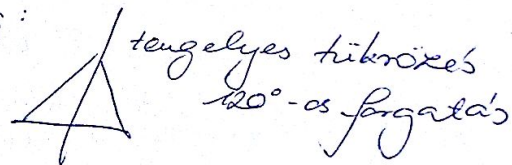 :
tengelyes tükrözés
120°-os forgatás